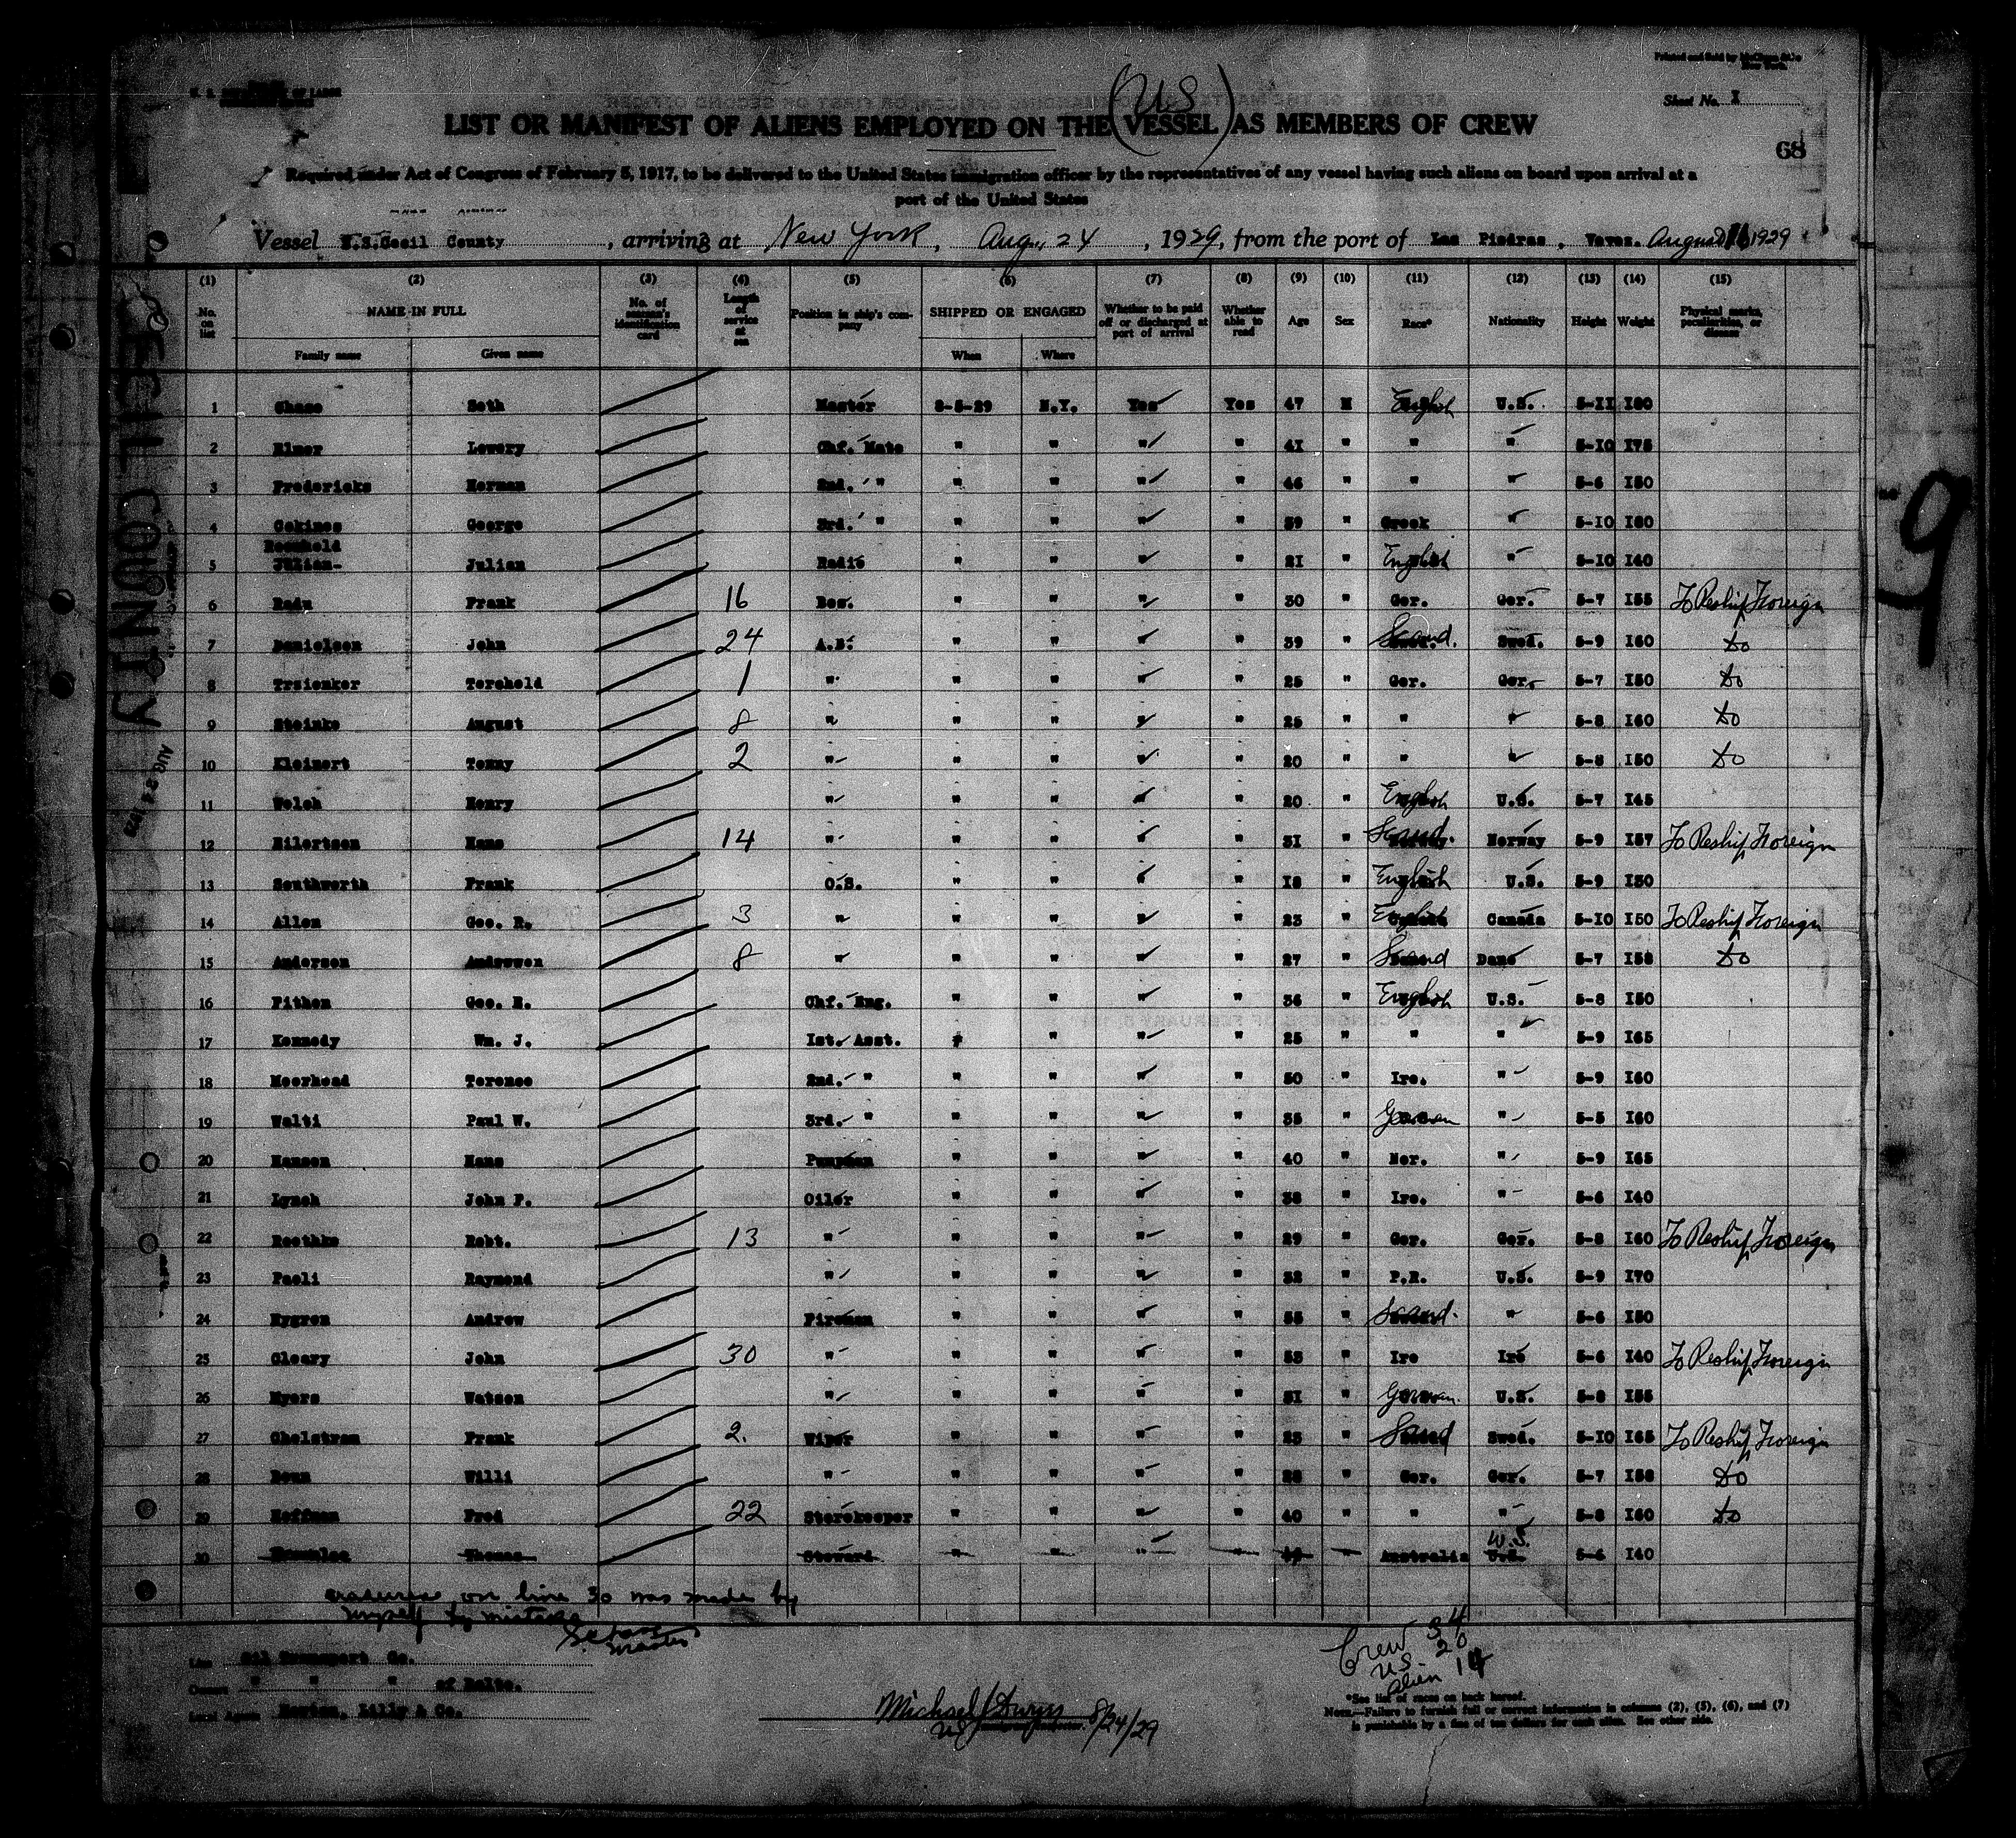 Printed and Sold by
New York.
Sheet No. I
(US)
LIST OR MANIFEST OF ALIENS EMPLOYED ON THE VESSEL AS MEMBERS OF CREW
68
Required under Act of Congress of February 5, 1917, to be delivered to the United States immigration officer by the representatives of any vessel having such aliens on board upon arrival at a
port of the United States
Vessel S.S.Cecil County, arriving at New York, Aug. 24, 1929, from the port of Las Piedras, August 16 1929
(1) (2) (3) (4) (5) (6) (7) (8) (9) (10) (11) (12) (13) (14) (15)
No. on list NAME IN FULL No. of seaman's identification card Length of service at sea Position in ship's company SHIPPED OR ENGAGED Whether to be paid off or discharged at port of arrival Whether able to read Age Sex Race* Nationality Height Weight Physical marks, peculiarities, or disease
Family name Given name When Where
1 Chase Seth Master 8-5-29 N.Y. Yes Yes 47 M English U.S. 5-11 180
2 Elmer Lowery Chf. Mate " " " " 41 " " " 5-10 175
3 Fredericks Herman 2nd. " " " " " 46 " " " 5-6 150
4 George 3rd. " " " " " 39 " Greek " 5-10 180
5 Julian Radio " " " " 21 " English " 5-10 140
6 Radu Frank 16 Bos. " " " " 30 " Ger. Ger. 5-7 155 To Reship Foreign
7 Danielsen John 24 A.B. " " " " 39 " Scand. Swed. 5-9 160 do
8 1 " " " " " 25 " Ger. Ger. 5-7 150 do
9 Steinke August 8 " " " " " 25 " " " 5-8 160 do
10 Kleinert Tenny 2 " " " " " 20 " " " 5-8 150 do
11 Welch Henry " " " " " 20 " English U.S. 5-7 145
12 Eilertsen Hans 14 " " " " " 31 " Scand. Norway 5-9 157 To Reship Foreign
13 Southworth Frank O.S. " " " " 18 " English U.S. 5-9 150
14 Allen Geo. R. 3 " " " " " 23 " English Canada 5-10 150 To Reship Foreign
15 Andersen 8 " " " " " 27 " Scand Dane 5-7 158 do
16 Pithen Geo. E. Chf. Eng. " " " " 36 " English U.S. 5-8 150
17 Kennedy Wm. J. 1st. Asst. " " " " 25 " " " 5-9 165
18 Moorhead Terence 2nd. " " " " " 50 " Ire. " 5-9 160
19 Walti Paul W. 3rd. " " " " " 35 " German " 5-5 160
20 Hansen Hans Pumpman " " " " 40 " Nor. " 5-9 165
21 Lynch John P. Oiler " " " " 38 " Ire. " 5-6 140
22 Roethke Robt. 13 " " " " " 29 " Ger. Ger. 5-8 160 To Reship Foreign
23 Paoli Raymond " " " " " 32 " P.R. U.S. 5-9 170
24 Nygren Andrew Fireman " " " " 55 " Scand. " 5-6 150
25 Cleary John 30 " " " " " 53 " Ire Ire 5-6 140 To Reship Foreign
26 Myers Watson " " " " " 31 " German. U.S. 5-8 155
27 Chelstrom Frank 2. Wiper " " " " 23 " Scand Swed. 5-10 165 To Reship Foreign
28 Willi " " " " " 28 " Ger. Ger. 5-7 158 do
29 Hoffman Fred 22 Storekeeper " " " " 40 " " " 5-8 160 do
30 Thomas Steward " " " " " Australia U.S. U.S. 5-6 140
erasures on line 30 was made by
myself by mistake
S Chase
Master
Crew 34
US. 20
Alien 14
Line Oil Transport Co.
Owners " " " of Balto.
Local Agents Norton, Lilly & Co.
Michael 8/24/29
*See list of races on back hereof.
NOTE.—Failure to furnish full or correct information in columns (2), (5), (6), and (7)
is punishable by a fine of ten dollars for each alien. See other side.
CECIL COUNTY
AUG 24 1929
9